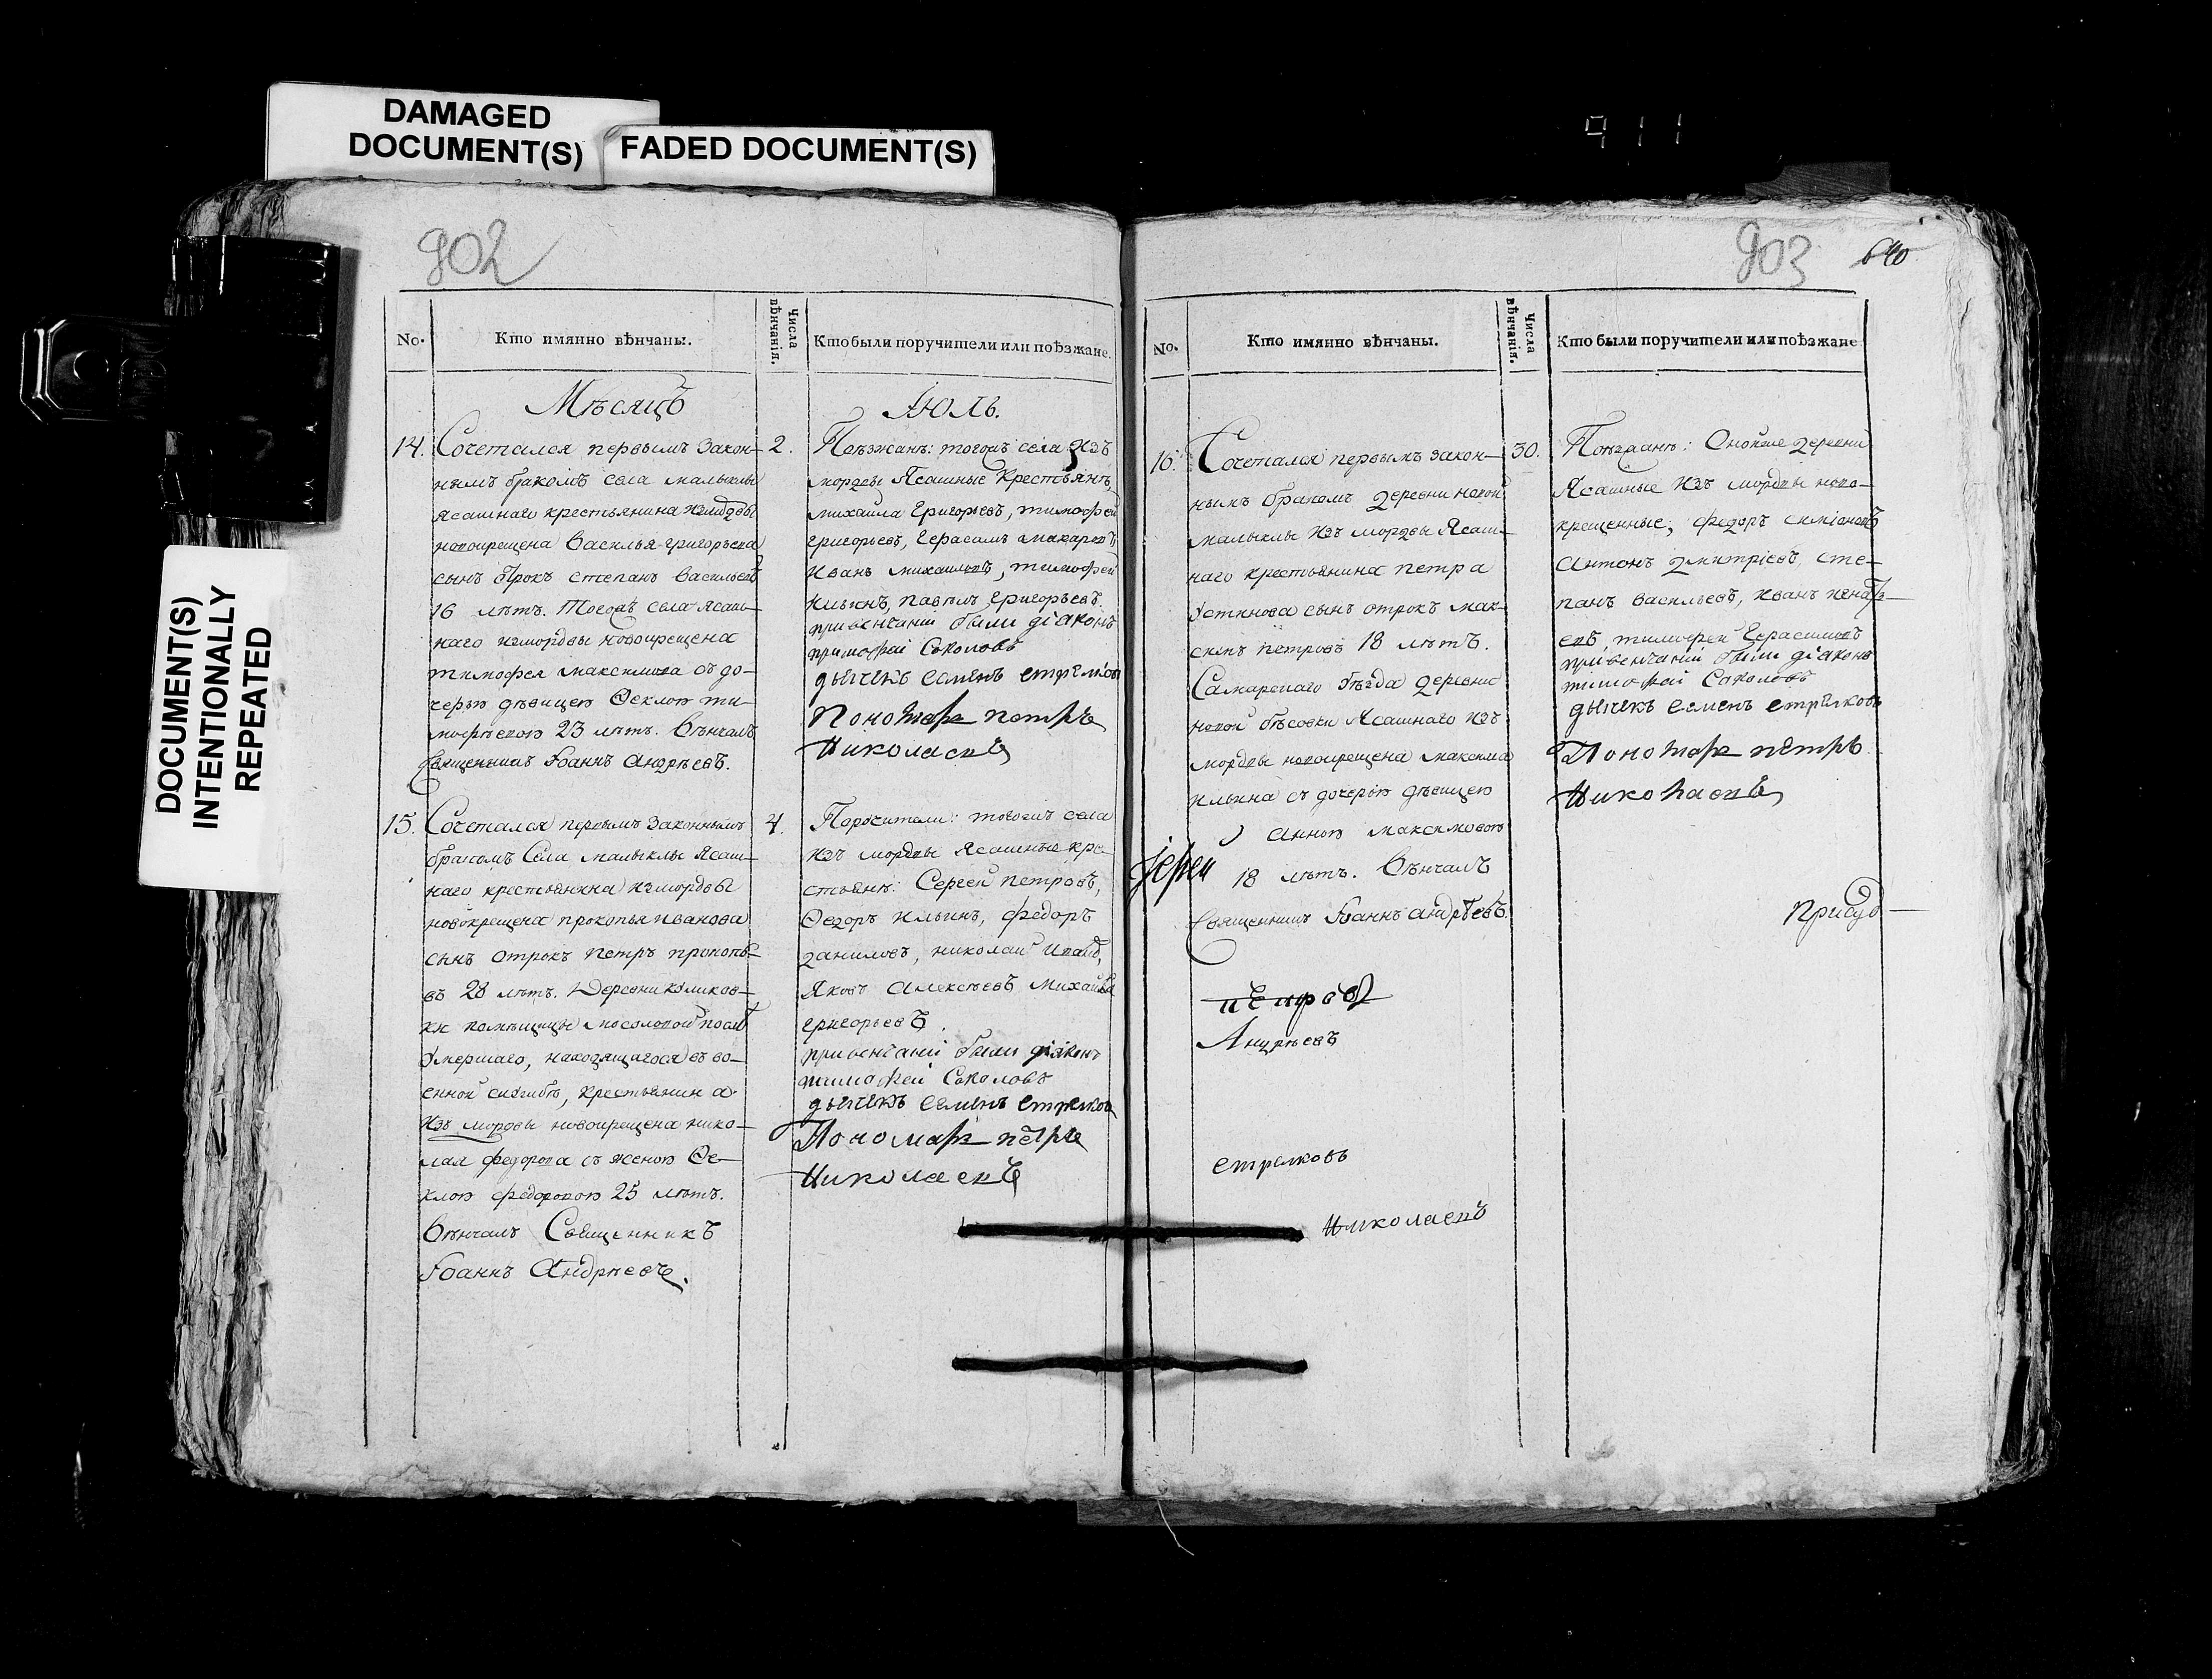 DAMAGED
DOCUMENT(S)
FADED DOCUMENT(S)
DOCUMENT(S)
INTENTIONALLY
REPEATED
911
902
No.
Кто имянно вѣнчаны.
Числа вѣнчанія.
Кто были поручители или поѣзжане.
Мѣсяцъ
Июль.
14.
Сочетался первымъ закон-
нымъ бракомъ села малыклы
ясашнаго крестьянина измордвы
новокрещена Василья григорьева
сынъ отрокъ степанъ васильевъ
16 лѣтъ. Тогожъ села ясаш-
наго измордвы новокрещена
тимофея максимова съ до-
черью дѣвицею Ѳеклою ти-
мофѣевою 23 лѣтъ. Вѣнчалъ
Священникъ Іоаннъ Андрѣевъ.
2.
Поѣзжанъ: тогожъ села изъ
мордвы Ясашные Крестьянъ,
михаила Григорьевъ, тимофей
григорьевъ, Герасимъ макаровъ
Иванъ михаиловъ, тимофей
Ильинъ, павилъ Григорьевъ.
привенчании были діаконъ
тимофей Соколовъ
дьячекъ семенъ стрелковъ
Пономарь петръ
Николаевъ
15.
Сочетался первымъ законнымъ
бракомъ Села малыклы Ясаш-
наго крестьянина измордвы
новокрещена прокопья иванова
сынъ отрокъ петръ прокопь-
евъ 28 лѣтъ. Деревни
помѣщицы послѣ
умершаго, находящигося въ во-
енной службѣ, крестьянина
изъ мордвы новокрещена нико-
лая федорова съ женою Ѳе-
клою федоровою 25 лѣтъ.
Вѣнчалъ Священникъ
Іоаннъ Андрѣевъ.
4.
Поручители: тогожъ села
изъ мордвы Ясашные кре-
стьянъ: Сергей петровъ,
Ѳедоръ ильинъ, федоръ
даниловъ, николай
Яковъ Алексѣевъ Михаила
григорьевъ.
привенчании были діаконъ
тимофей Соколовъ
дьячекъ семенъ стрелковъ
Пономарь петръ
Николаевъ
903
640
No.
Кто имянно вѣнчаны.
Числа вѣнчанія.
Кто были поручители или поѣзжане
16.
Сочетался первымъ закон-
нымъ бракомъ деревни новой
малыклы изъ мордвы Ясаш-
наго крестьянина петра
Устинова сынъ отрокъ мак-
симъ петровъ 18 лѣтъ.
Самарскаго уѣзда деревни
новой бѣсовки Ясашнаго изъ
мордвы новокрещена максима
ильина съ дочерью дѣвицею
Анною максимовою
18 лѣтъ. Вѣнчалъ
Священникъ Іоаннъ андрѣевъ.
30.
Поѣзжанъ: Оной же деревни
Ясашные изъ мордвы ново-
крещенные, федоръ
Антонъ дмитріевъ, сте-
панъ васильевъ, иванъ
евъ тимофей Герасимовъ
привенчании были діаконъ
тимофей Соколовъ
дьячекъ семенъ стрелковъ
Пономарь петръ
Николаевъ
Іерей
петровъ
Андрѣевъ
стрелковъ
Николаевъ